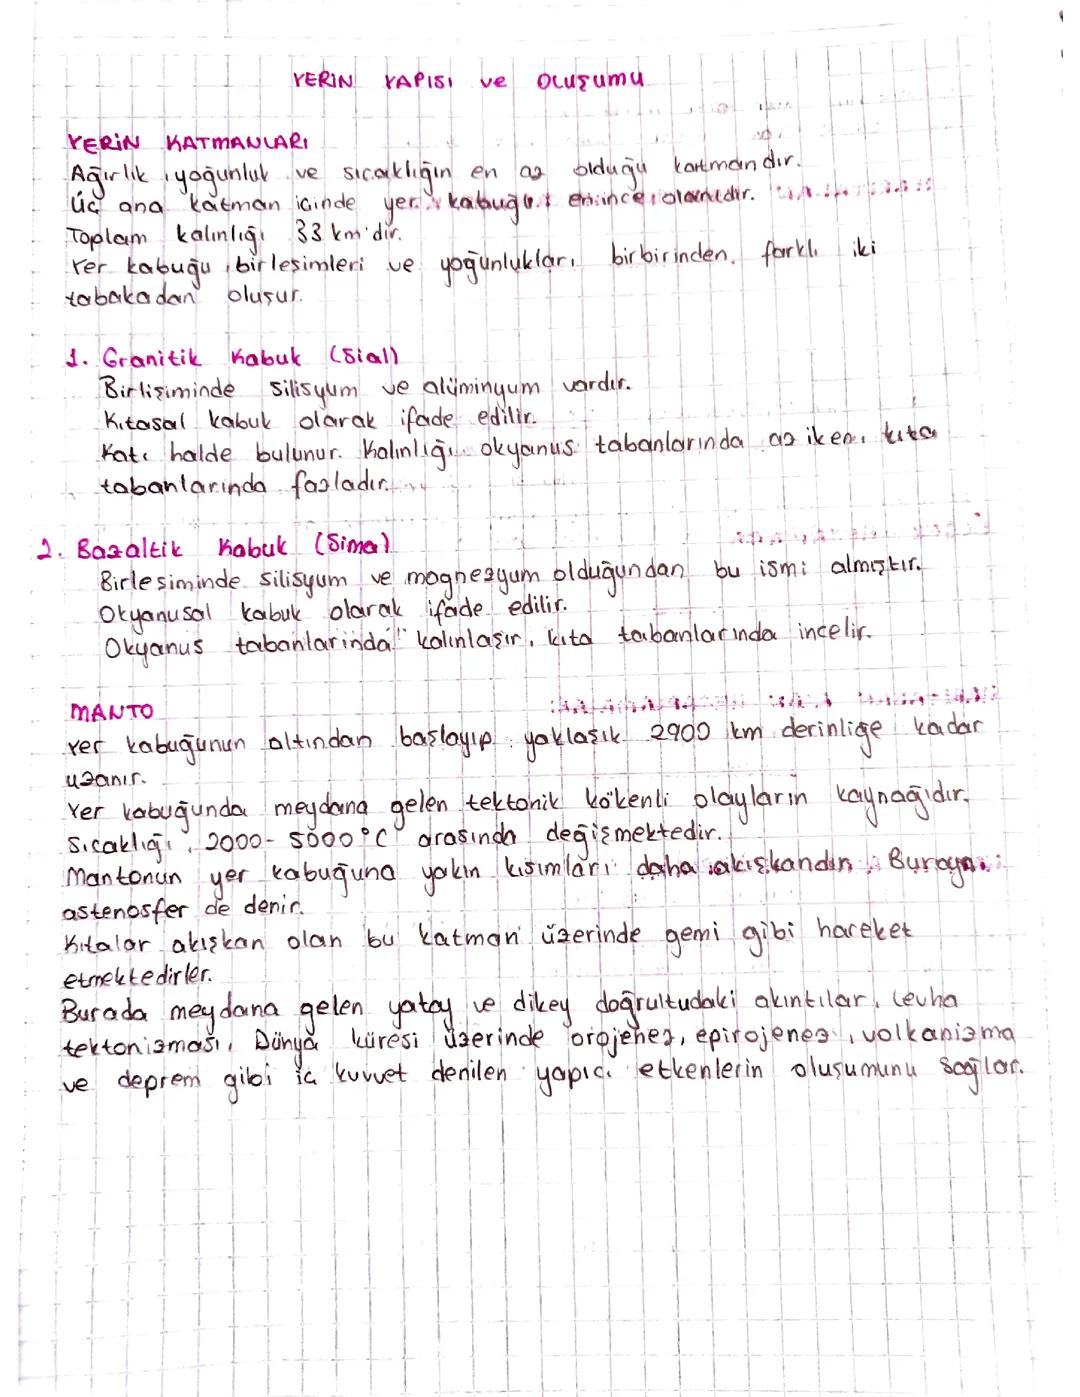 YERİN YAPISI ve OLUŞUMU
YERİN KATMANLARI
Ağırlık, yoğunluk ve sıcaklığın en az olduğu katmandır.
Üç ana katman içinde yer kabuğu en ince olanıdır.
Toplam kalınlığı 33 km'dir.
Yer kabuğu, birleşimleri ve yoğunlukları birbirinden farklı iki
tabakadan oluşur.
1. Granitik Kabuk (Sial)
Birlişiminde silisyum ve alüminyum vardır.
Kıtasal kabuk olarak ifade edilir.
Katı halde bulunur. Kalınlığı okyanus tabanlarında az iken, kıta
tabanlarında fazladır.
2. Bazaltik Kabuk (Sima)
Birleşiminde silisyum ve magnezyum olduğundan bu ismi almıştır.
Okyanusal kabuk olarak ifade edilir.
Okyanus tabanlarında kalınlaşır, kıta tabanlarında incelir.
MANTO
Yer kabuğunun altından başlayıp yaklaşık 2900 km derinliğe kadar
uzanır.
Yer kabuğunda meydana gelen tektonik kökenli olayların kaynağıdır.
Sıcaklığı, 2000-5000 °C arasında değişmektedir.
Mantonun yer kabuğuna yakın kısımları daha akışkandır. Buraya
astenosfer de denir.
Kıtalar akışkan olan bu katman üzerinde gemi gibi hareket
etmektedirler.
Burada meydana gelen yatay ve dikey doğrultudaki akıntılar, levha
tektonizması, Dünya küresi üzerinde orojenez, epirojenez, volkanizma
ve deprem gibi iç kuvvet denilen yapıcı etkenlerin oluşumunu sağlar.